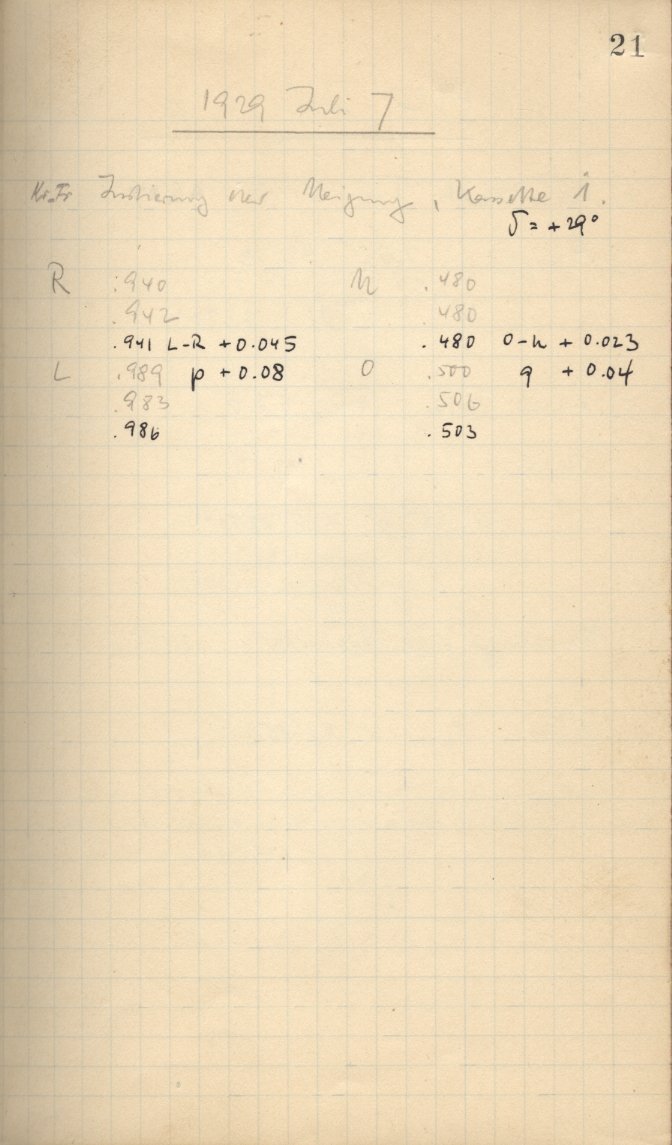 21
1929 Juli 7
Kr.Fr Justierung der Neigung, Kassette 1.
δ = +29°
R .940 N .480
.942 .480
.941 L-R +0.045 .480 O-N +0.023
L .989 p +0.08 O .500 q +0.04
.983 .506
.986 .503